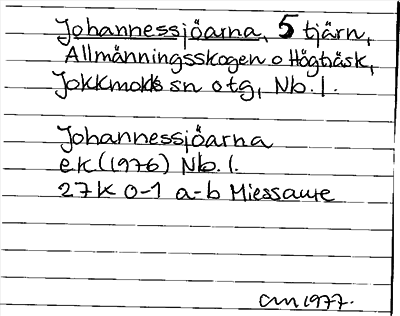 Johannessjöarna, 5 tjärn,
Allmänningsskogen o Högträsk,
Jokkmokks sn o tg, Nb. l.
Johannessjöarna
ek (1976) Nb. l.
27K 0-1 a-b Miessaure
am 1977.